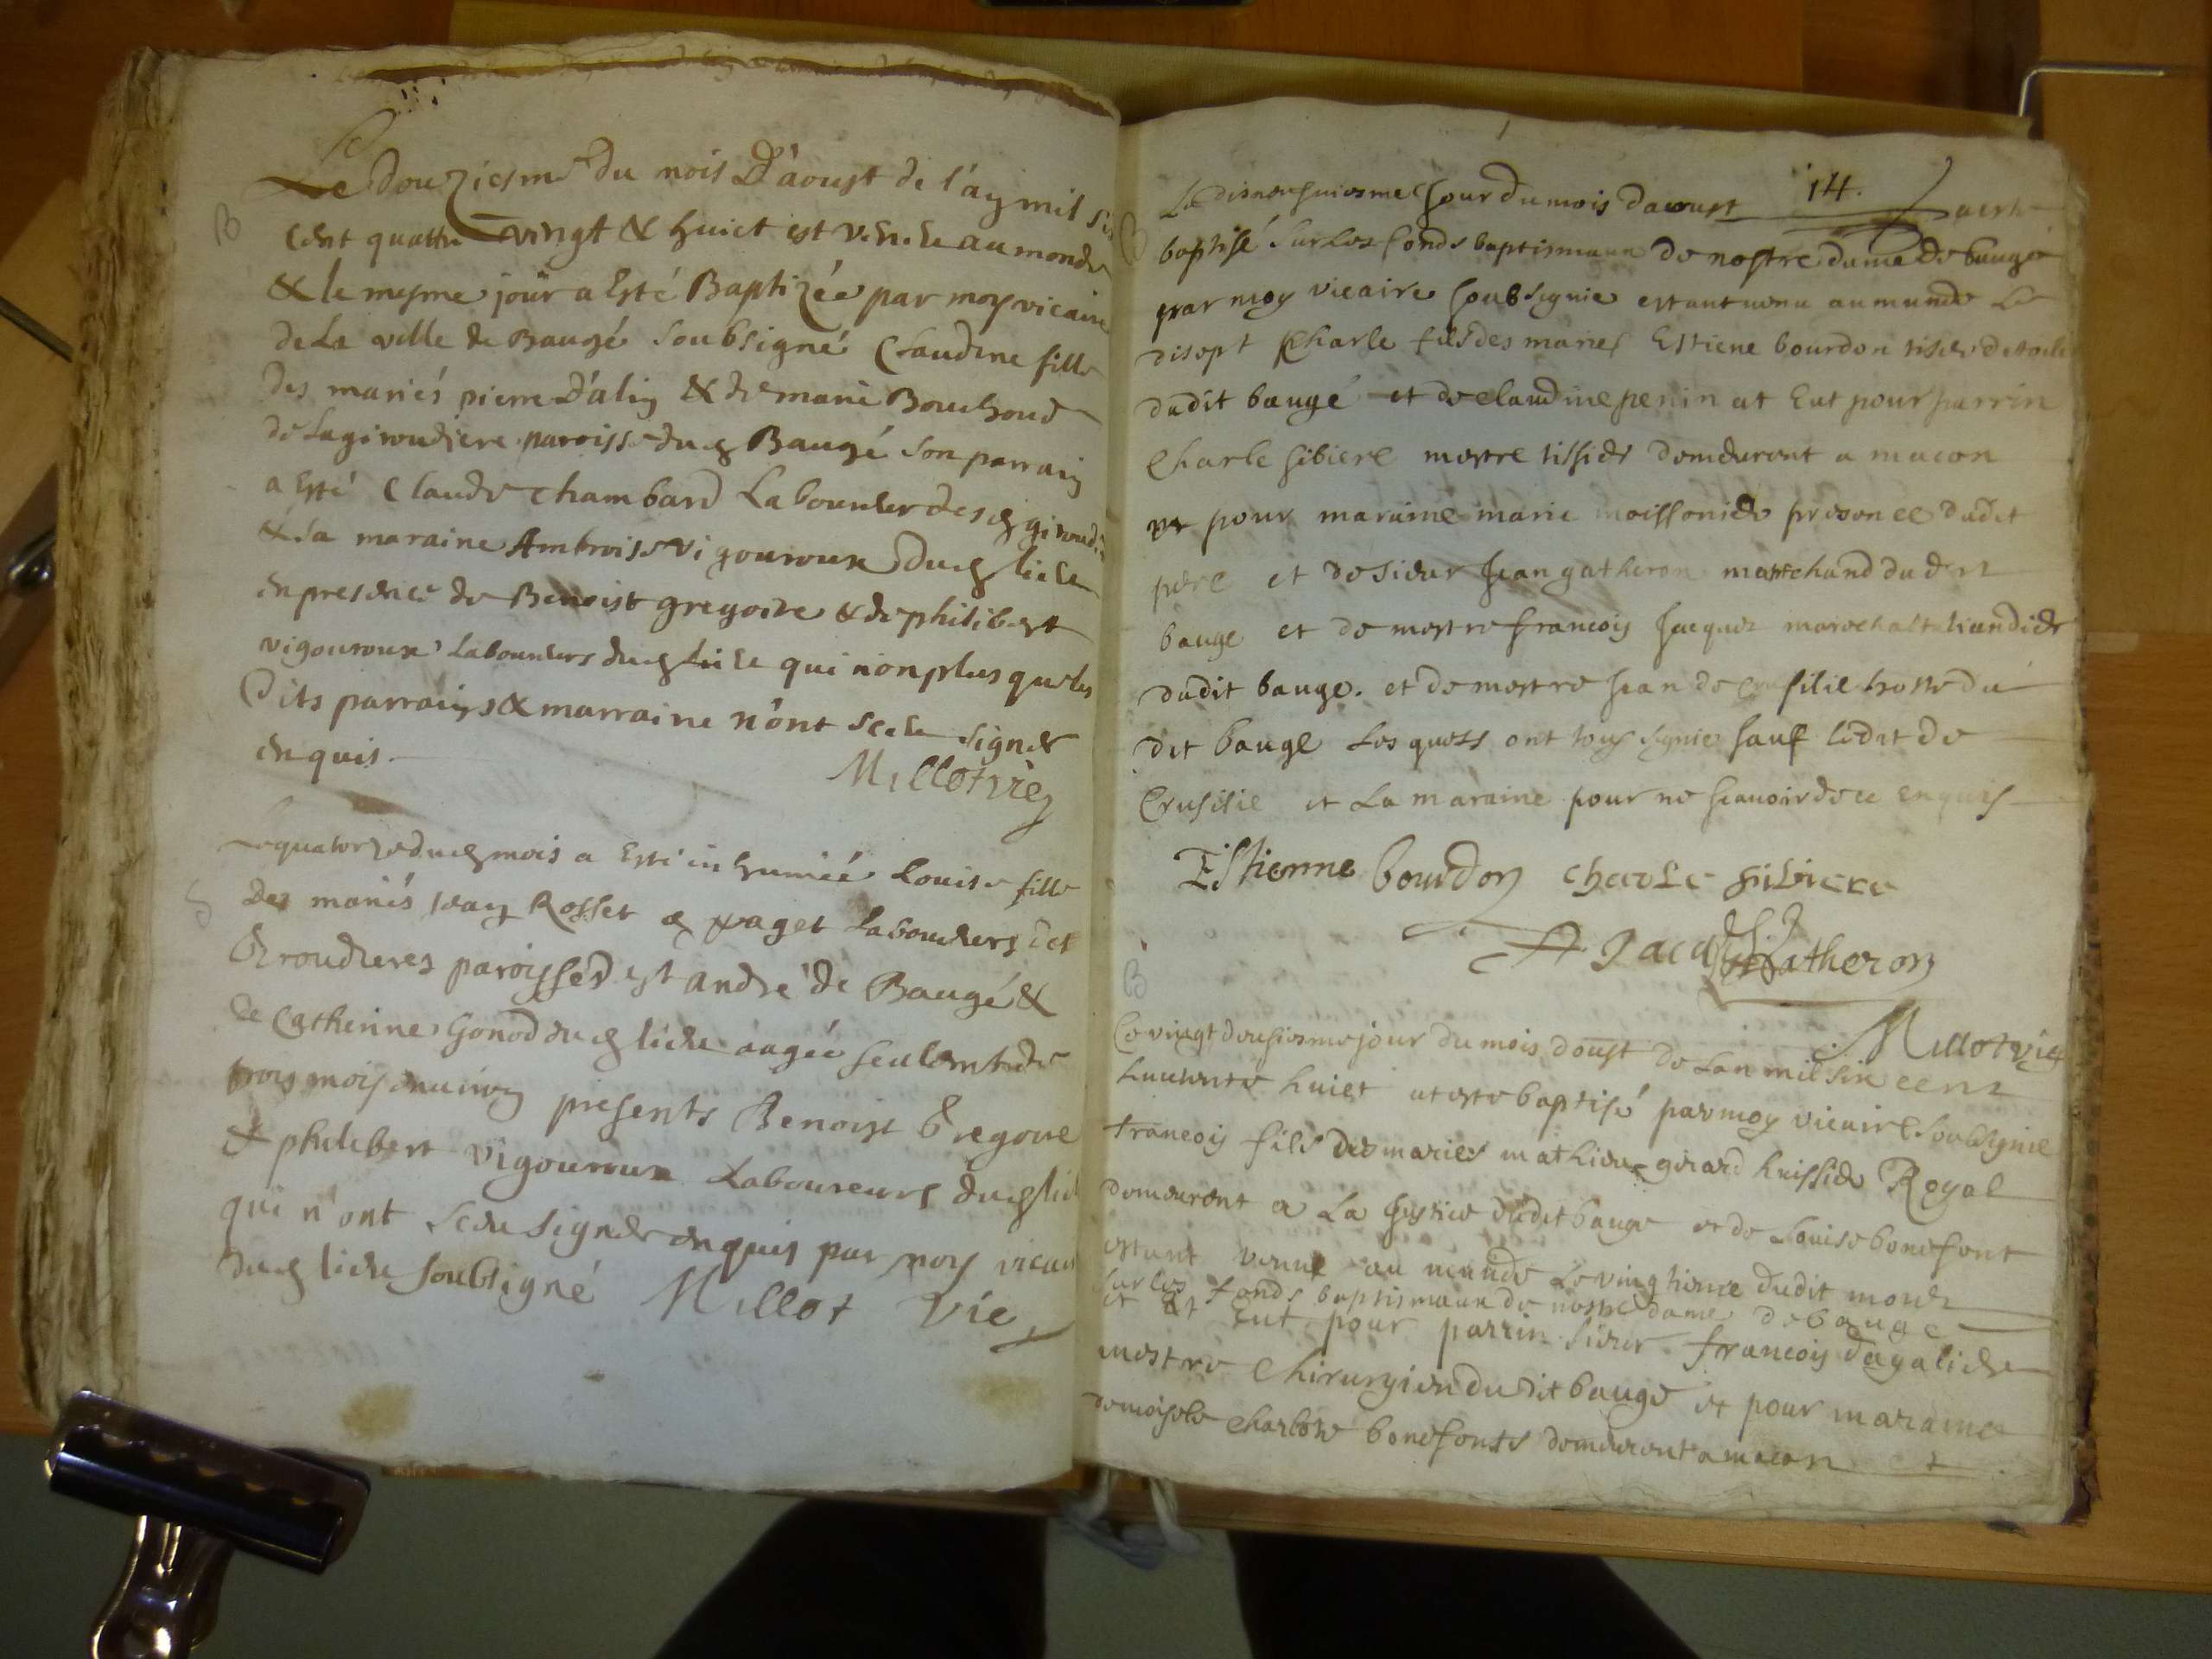 Le douziesme du mois D'aoust de l'an mil six
cent quattre vingt & huict est venue au monde
& le mesme jour a Esté Baptizée par moy vicaire
de La ville de Baugé soubsigné Claudine fille
des mariés pierre D'alin & de marie Bouchoud
de Lagiroudiere paroisse dud Baugé son parrain
a Esté Claude Chambard Laboureur desd giroud
& sa maraine Ambroise Vigouroux dud lieu
en presence de Benoist gregoire & de philibert
vigouroux Laboureurs dud lieu qui non plus que les
Dits parrains & marraine n'ont sceu signer
enquis.
Millot vic
B
Le quatorze dud mois a Esté inhumée Louise fille
des mariés Jean Rosset paget Laboureurs des
Giroudieres paroisse de st andré de Baugé &
de Catherine Gonod dud lieu aagée seulemt de
trois mois environ presents Benoist Gregoire
& philebert vigouroux Laboureurs dud lieu
qui n'ont sceu signer enquis par moy vicaire
dud lieu soubsigné Millot vic
14.
Le disneufuiesme Jour du mois daoust a este
baptisé sur Les fonds baptismaux de nostre dame de baugé
par moy vicaire soubsignie estant venu au munde Le
disept Charle fils des maries Estiene bourdon tisier de toile
dudit baugé et de claudine penin at Eut pour parrin
Charle sibiere mestre tissier demeurent a macon
et pour maraine marie moissonier presence dudit
pere et de sieur Jean gatheron marchand dudit
bauge et de mestre francois Jacquet marechal taliandier
dudit bauge. et de mestre Jean de Crusilie hoste du
dit bauge Lesquels ont tous signie sauf ledit de
Crusilie et La maraine pour ne scauoir de ce enquis
Estienne bourdon charle sibiere
Gatheron
Millot vic
B
Ce vingt deusiesme jour du mois doust de Lan mil six cent
huict at este baptisé par moy vicaire soubsignie
francois fils des maries mathieu girard huissier Royal
demeurent a La Justice dudit bauge et de Louise bonefont
estant venue au munde Le vingtieme dudit mois
sur les fonds baptismaux de nostre dame de bauge
et at Eut pour parrin sieur francois dagalier
mestre Chirurgien dudit bauge et pour maraine
demoisele Charlote bonefonts demeurent a macon